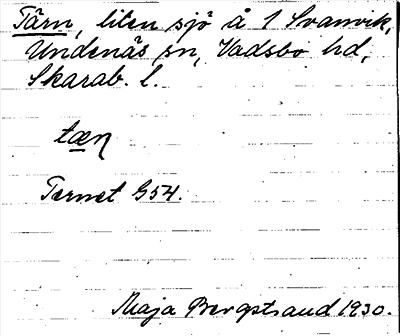 Tärn, liten sjö å 1 Svanvik,
Undenäs sn, Vadsbo hd,
Skarab. l.
tæɳ
Ternet G54.
Maja Bergstrand 1930.